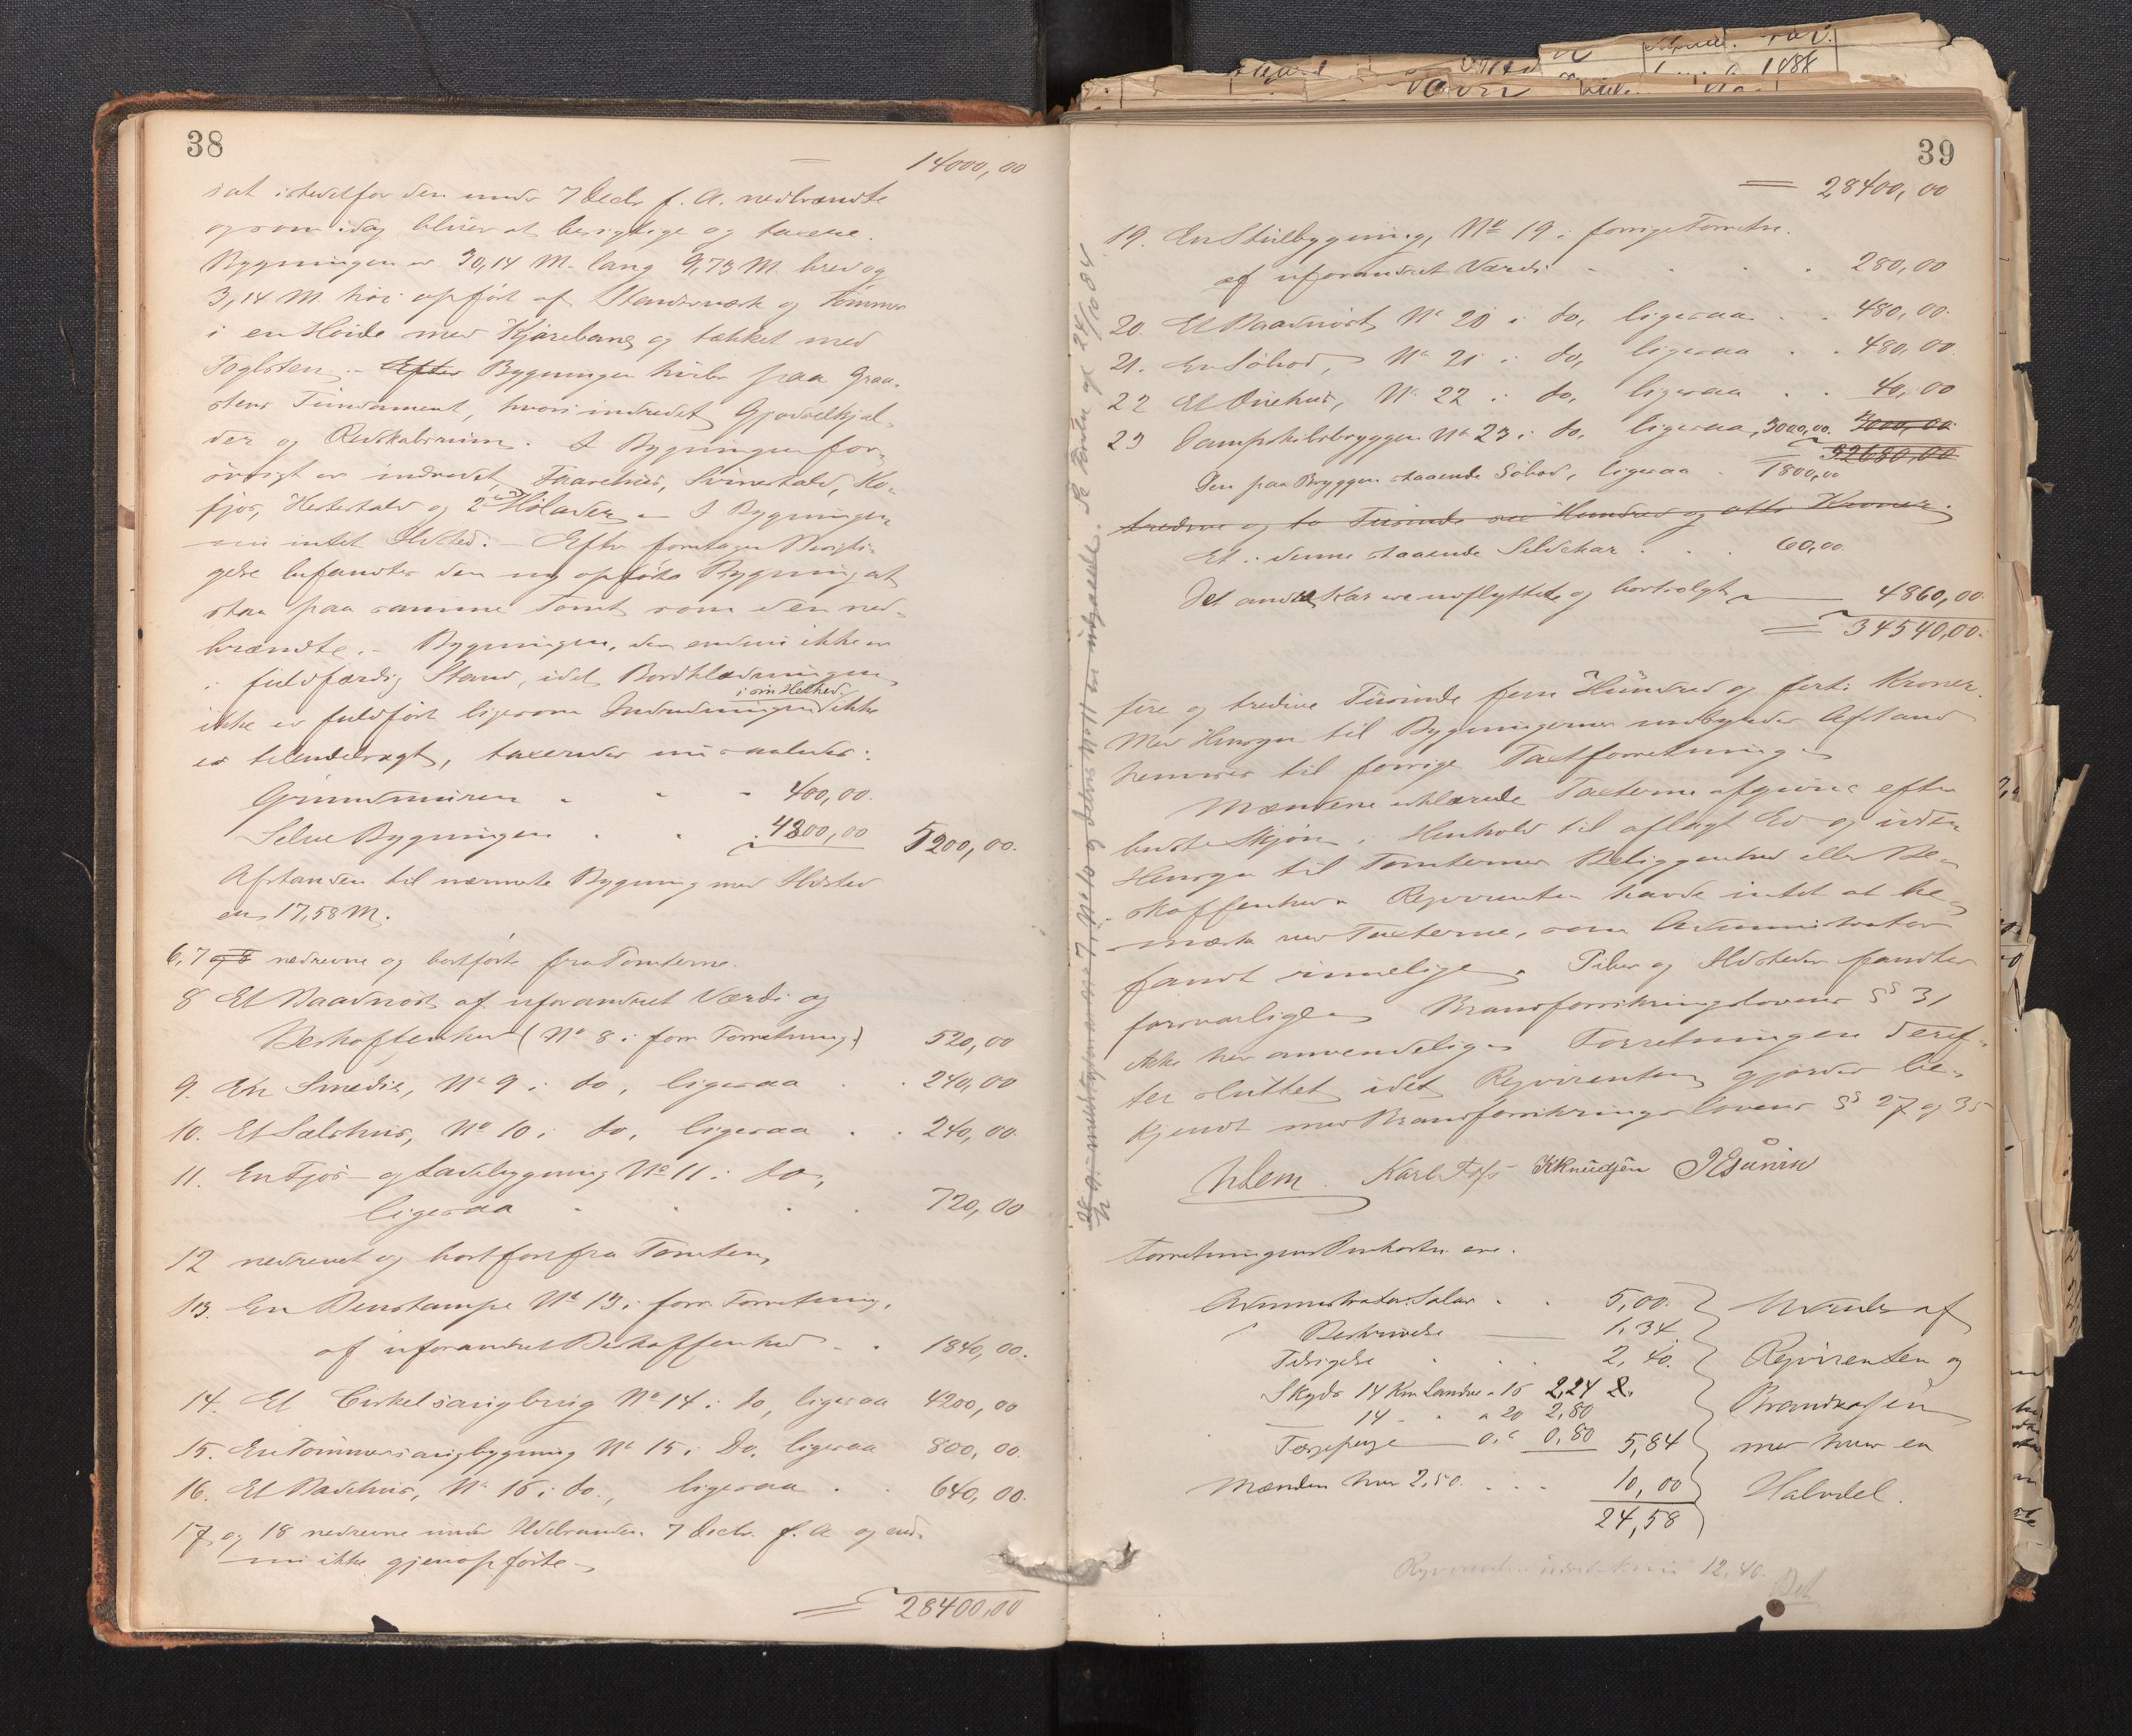 38
— 14000,00
sat istedetfor den under 7 Decbr f. A. nedbrændte
og som idag bliver at besigtige og taxere.
Bygningen er 30,14 M. lang 9,73 M. bred og
3,14 M. høi opført af Standerværk og Tømmer
i en Høide med Kjørebane og tækket med
Taglsten. – Efter Bygningen hviler paa Graa-
stens Fundament, hvori indredet Gjødselkjæl-
der og Redskabsrum. I Bygningen for-
øvrigt er indredet Faarehus, Svinestald, Ko-
fjøs, Hestestald og 2de Hølader. – I Bygningen
intet Ildsted. – Efter foretagen Besigti-
gelse befandtes den ny opførte Bygning at
staa paa samme Tomt som den ned-
brændte. – Bygningen, der endnu ikke er
i fuldfærdig Stand, idet Bordklædningen
i sin Helhed
ikke er fuldført ligesom Indredningen ikke
er tilendebragt, taxeredes nu saaledes:
Grundmuren - - - 400,00.
Selve Bygningen . . . 4800,00 5200,00.
Afstanden til nærmeste Bygning med Ildsted
er 17,58 M.
6, 7 og 8 nedrevne og bortførte fra Tomterne.
8 Et Baadnøst af uforandret Værdi og
Beskaffenhed (No 8 i forr. Forretning) 520,00
9. En Smedie, No 9 i do, ligesaa . . 240,00
10. Et Saltshus, No 10 i do, ligesaa . . 240,00.
11. En Fjøs- og Ladebygning No 11 i do,
ligesaa - . . . 720,00
12 nedrevet og bortført fra Tomten,
13. En Benstampe No 13 i forr. Forretning,
af uforandret Beskaffenhed . . 1840,00.
14. Et Cirkelsaugbrug No 14 i do, ligesaa 4200,00
15. En Tømmersaugbygning No 15 i Do, ligesaa 800,00.
16. Et Badehus, No 16 i do., ligesaa . . 640,00.
17 og 18 nedrevne under Ildebranden 7 Decbr. f. A. og end-
nu ikke gjenopførte.
= 28400,00
39
= 28400,00
19. En Stuebygning, No 19 i forrige Forretn.
af uforandret Værdi - . . . 280,00
20. Et Baadnøst, No 20 i do, ligesaa . . 480,00.
21. En Søbod, No 21 i do, ligesaa . . 480,00
22 Et huus, No 22 i do, ligesaa . . 40,00
23 Dampskibsbryggen No 23 i do, ligesaa, 3000,00. 3000,00
32680,00
Den paa Bryggen staaende Søbod, ligesaa . 1800,00
tredive og to Tusinde sex Hundred og otti Kroner.
Et i denne staaende Sildekar . . . 60,00
Det andet Kar er udflyttede og bortsolgt — 4860,00.
= 34540,00.
fire og tredive Tusinde fem Hundred og forti Kroner.
Med Hensyn til Bygningernes indbyrdes Afstand
henvises til forrige Taxtforretning.
Mændene erklærede Taxterne afgivne efter
bedste Skjøn, i Henhold til aflagt Ed og uden
Hensyn til Tomternes Beliggenhed eller Be-
skaffenhed. Reqvirenten havde intet at be-
mærke ved Taxterne, som Administrator
fandt rimelige. Piber og Ildsteder fandtes
forsvarlige. Brandforsikringslovens §§ 31
ikke her anvendelig. Forretningen deref-
ter sluttet idet Reqvirenten gjordes be-
kjendt med Brandforsikringslovens §§ 27 og 35
Karl KKnudsen
Forretningens Omkostn. ere:
Administrators Salær . . 5,00.
Beskrivelse — 1,34
Tilsigelse . . . 2,40.
Skyds 14 Km Landvei a 16 2,24
14 - - a 20 2,80
Færgepenge — 0,80 5,84
Mænden hver 2,50. . . . 10,00
24,58
Udredes af
Reqvirenten og
Brandkassen
med hver en
Halvdel.
12,40.